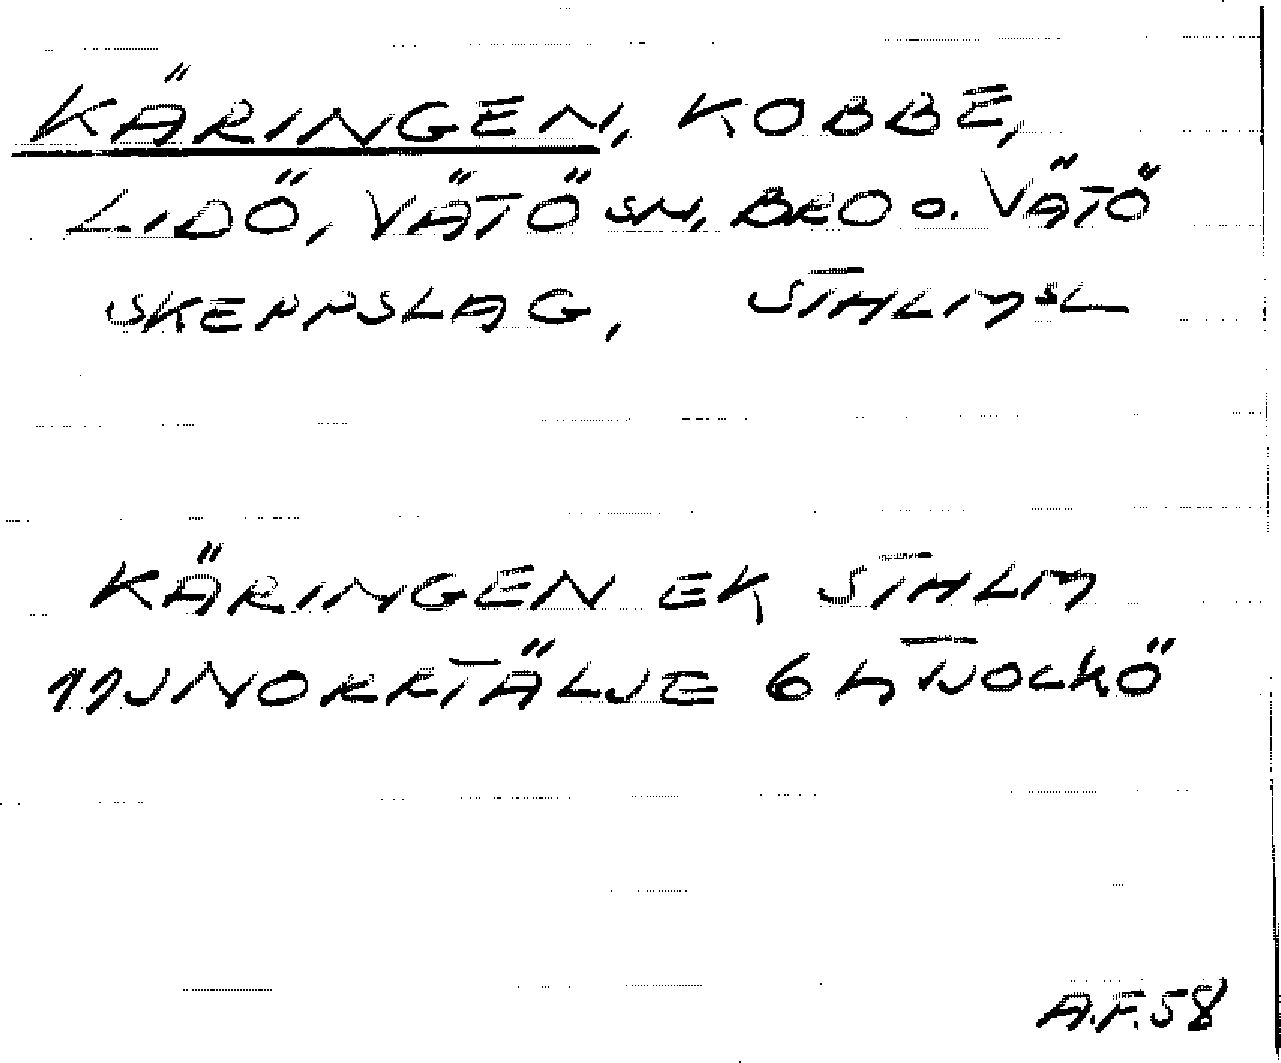 KÄRINGEN, KOBBE,
LIDÖ, VÄTÖ SN, BRO O. VÄTÖ
SKEPPSLAG, STHLMSL
KÄRINGEN EK STHLM
11J NORRTÄLJE 6h TJOCKÖ
A.F.58